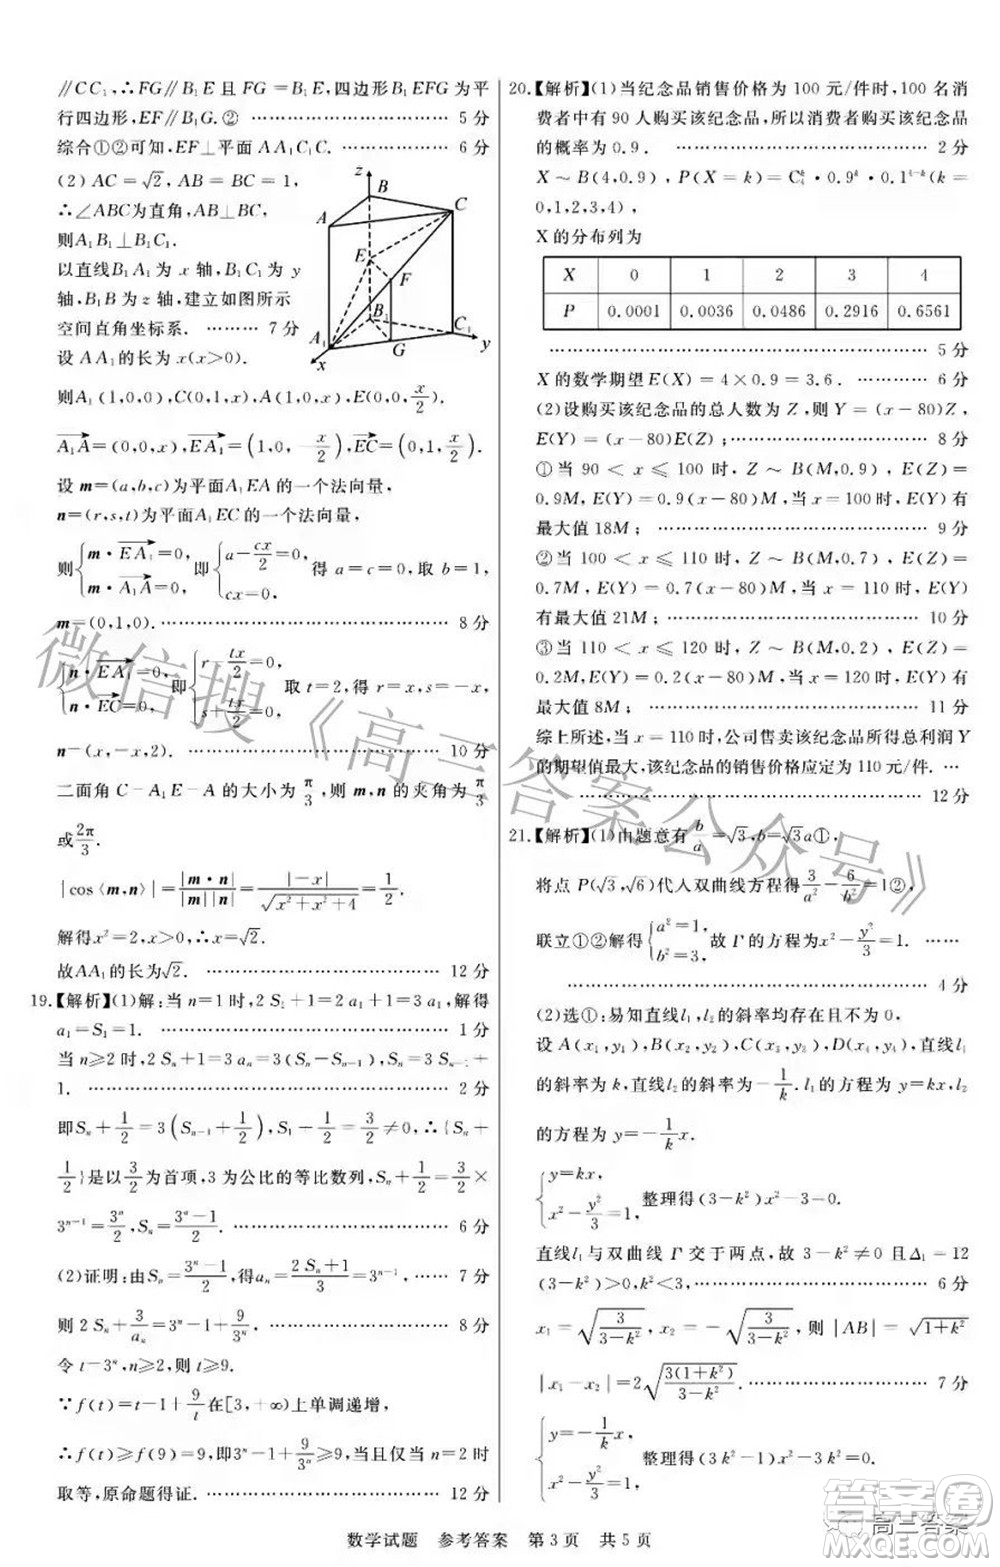 ∥CC₁，∴FG∥B₁E且FG=B₁E，四边形B₁EFG为平
行四边形，EF∥B₁G.② …… 5分
综合①②可知，EF⊥平面AA₁C₁C. …… 6分
(2)AC=√2，AB=BC=1，
∴∠ABC为直角，AB⊥BC，
则A₁B₁⊥B₁C₁.
以直线B₁A₁为x轴，B₁C₁为y
轴，B₁B为z轴，建立如图所示
空间直角坐标系. …… 7分
设AA₁的长为x(x>0).
z
B
A
C
E
F
B₁
A₁
C₁
G
x
y
则A₁(1,0,0),C(0,1,x),A(1,0,x),E(0,0,x/2).
A₁A=(0,0,x),EA₁=(1,0,-x/2),EC=(0,1,x/2).
设m=(a,b,c)为平面A₁EA的一个法向量，
n=(r,s,t)为平面A₁EC的一个法向量，
则{m·EA₁=0, m·A₁A=0, 即{a-cx/2=0, cx=0. 得a=c=0,取b=1,
m=(0,1,0). …… 8分
{n·EA₁=0, n·EC=0, 即{r-tx/2=0, s+tx/2=0. 取t=2,得r=x,s=-x,
n=(x,-x,2). …… 10分
二面角C-A₁E-A的大小为π/3,则m,n的夹角为π/3
或2π/3.
|cos⟨m,n⟩|=|m·n|/|m||n|=|-x|/√(x²+x²+4)=1/2.
解得x²=2,x>0,∴x=√2.
故AA₁的长为√2. …… 12分
19.【解析】(1)解:当n=1时,2S₁+1=2a₁+1=3a₁,解得
a₁=S₁=1. …… 1分
当n≥2时,2Sₙ+1=3(Sₙ-Sₙ₋₁),Sₙ=3Sₙ₋₁+
1. …… 2分
即Sₙ+1/2=3(Sₙ₋₁+1/2),S₁+1/2=3/2≠0,∴{Sₙ+
1/2}是以3/2为首项,3为公比的等比数列,Sₙ+1/2=3/2×
3ⁿ⁻¹=3ⁿ/2,Sₙ=(3ⁿ-1)/2. …… 6分
(2)证明:由Sₙ=(3ⁿ-1)/2,得aₙ=(2Sₙ+1)/3=3ⁿ⁻¹. …… 7分
则2Sₙ+3/aₙ=3ⁿ-1+9/3ⁿ. …… 8分
令t=3ⁿ,n≥2,则t≥9.
∵f(t)=t-1+9/t在[3,+∞)上单调递增,
∴f(t)≥f(9)=9,即3ⁿ-1+9/3ⁿ≥9,当且仅当n=2时
取等,原命题得证. …… 12分
20.【解析】(1)当纪念品销售价格为100元/件时,100名
消费者中有90人购买该纪念品,所以消费者购买该纪念品
的概率为0.9. …… 2分
X~B(4,0.9),P(X=k)=C₄ᵏ·0.9ᵏ·0.1⁴⁻ᵏ(k=
0,1,2,3,4),
X的分布列为
X 0 1 2 3 4
P 0.0001 0.0036 0.0486 0.2916 0.6561
…… 5分
X的数学期望E(X)=4×0.9=3.6. …… 6分
(2)设购买该纪念品的总人数为Z,则Y=(x-80)Z,
E(Y)=(x-80)E(Z); …… 8分
①当90<x≤100时,Z~B(M,0.9),E(Z)=
0.9M,E(Y)=0.9(x-80)M,当x=100时,E(Y)有
最大值18M; …… 9分
②当100<x≤110时,Z~B(M,0.7),E(Z)=
0.7M,E(Y)=0.7(x-80)M,当x=110时,E(Y)
有最大值21M; …… 10分
③当110<x≤120时,Z~B(M,0.2),E(Z)=
0.2M,E(Y)=0.2(x-80)M,当x=120时,E(Y)有
最大值8M; …… 11分
综上所述,当x=110时,公司售卖该纪念品所得总利润Y
的期望值最大,该纪念品的销售价格应定为110元/件. …
…… 12分
21.【解析】(1)由题意有b/a=√3,b=√3a①,
将点P(√3,√6)代入双曲线方程得3/a²-6/b²=1②,
联立①②解得{a²=1, b²=3, 故Γ的方程为x²-y²/3=1. ……
…… 4分
(2)选①:易知直线l₁,l₂的斜率均存在且不为0,
设A(x₁,y₁),B(x₂,y₂),C(x₃,y₃),D(x₄,y₄),直线l₁
的斜率为k,直线l₂的斜率为-1/k,l₁的方程为y=kx,l₂
的方程为y=-1/k x.
{y=kx, x²-y²/3=1, 整理得(3-k²)x²-3=0.
直线l₁与双曲线Γ交于两点,故3-k²≠0且Δ₁=12
(3-k²)>0,k²<3, …… 6分
x₁=√(3/(3-k²)),x₂=-√(3/(3-k²)),则|AB|=√(1+k²)
|x₁-x₂|=2√(3(1+k²)/(3-k²)). …… 7分
{y=-1/k x, x²-y²/3=1, 整理得(3k²-1)x²-3k²=0.
数学试题 参考答案 第3页 共5页
微信搜《高三答案公众号》
答案卷
高三答案